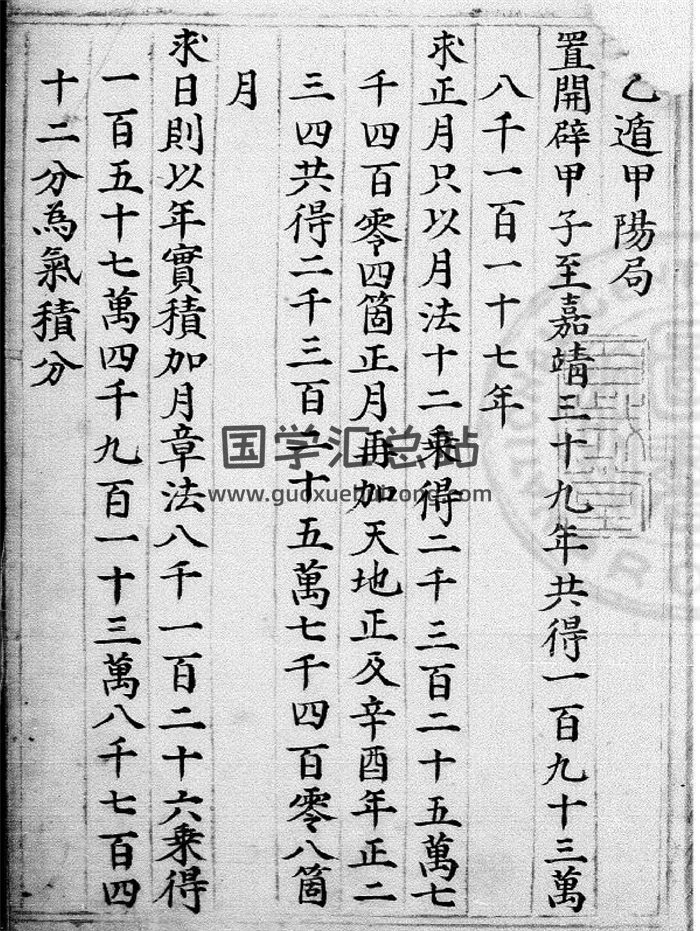 乙遁甲陽局
置開辟甲子至嘉靖三十九年共得一百九十三萬
八千一百一十七年
求正月只以月法十二乗得二千三百二十五萬七
千四百零四箇正月再加天地正及辛酉年正二
三四共得二千三百二十五萬七千四百零八箇
月
求日則以年實積加月章法八千一百二十六乗得
一百五十七萬四千九百一十三萬八千七百四
十二分為氣積分
国学汇总站
www.guoxuehuizong.com